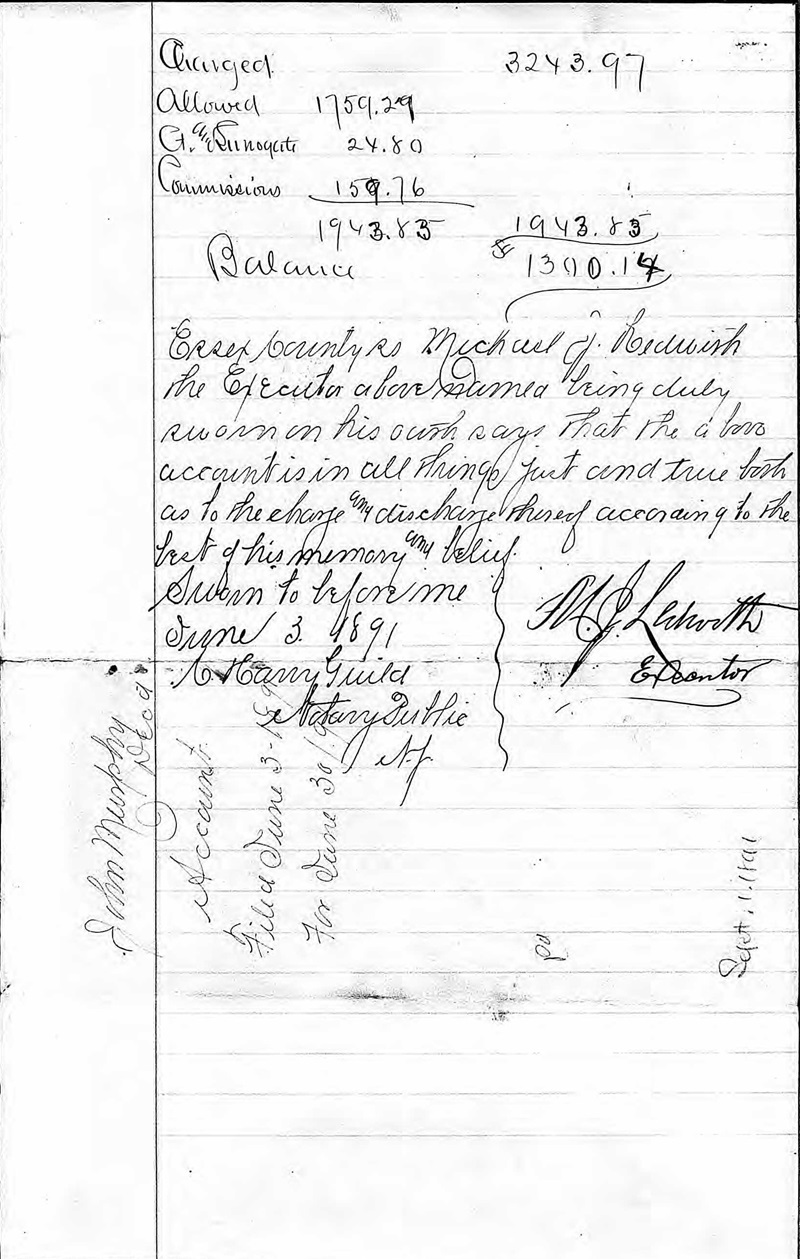 Charged. 3243.97
Allowed 1759.29
Ct. & Surrogate 24.80
Commissions 159.76
1943.85 1943.85
Balance $1300.14
Essex County ss Michael J. Ledwith
the Executor above named being duly
sworn on his oath says that the above
account is in all things just and true both
as to the charge and discharge thereof according to the
best of his memory and belief.
Sworn to before me
June 3. 1891
M. J. Ledwith
Executor
C. Harry Guild
Notary Public
N.J.
John Murphy
Decd
Account
Filed June 3-189
For June 30/9
pd
Sept. 1. 1891